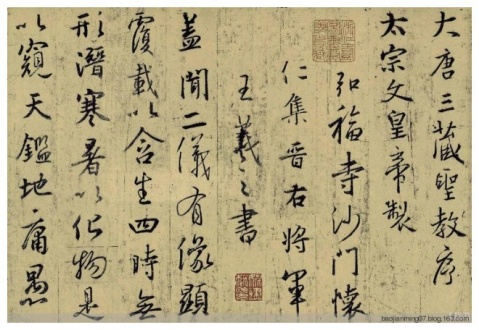 大唐三藏聖教序
太宗文皇帝製
弘福寺沙門懷
仁集晋右將軍
王羲之書
蓋聞二儀有像顯
覆載以含生四時無
形潛寒暑以化物是
以窺天鑑地庸愚
baojianming07.blog.163.com